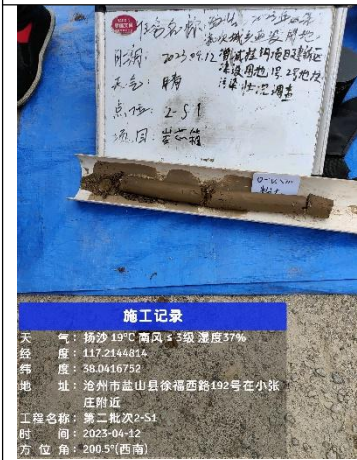 任务名称：
日期：2023.04.12
天气：晴
点位：2-S1
项目：岩芯箱
增减挂钩项目建新区
建设用地
污染状况调查
施工记录
天 气：扬沙 19℃ 南风≤3级 湿度37%
经 度：117.2144814
纬 度：38.0416752
地 址：沧州市盐山县徐福西路192号在小张
庄附近
工程名称：第二批次2-S1
时 间：2023-04-12
方 位 角：200.5°(西南)